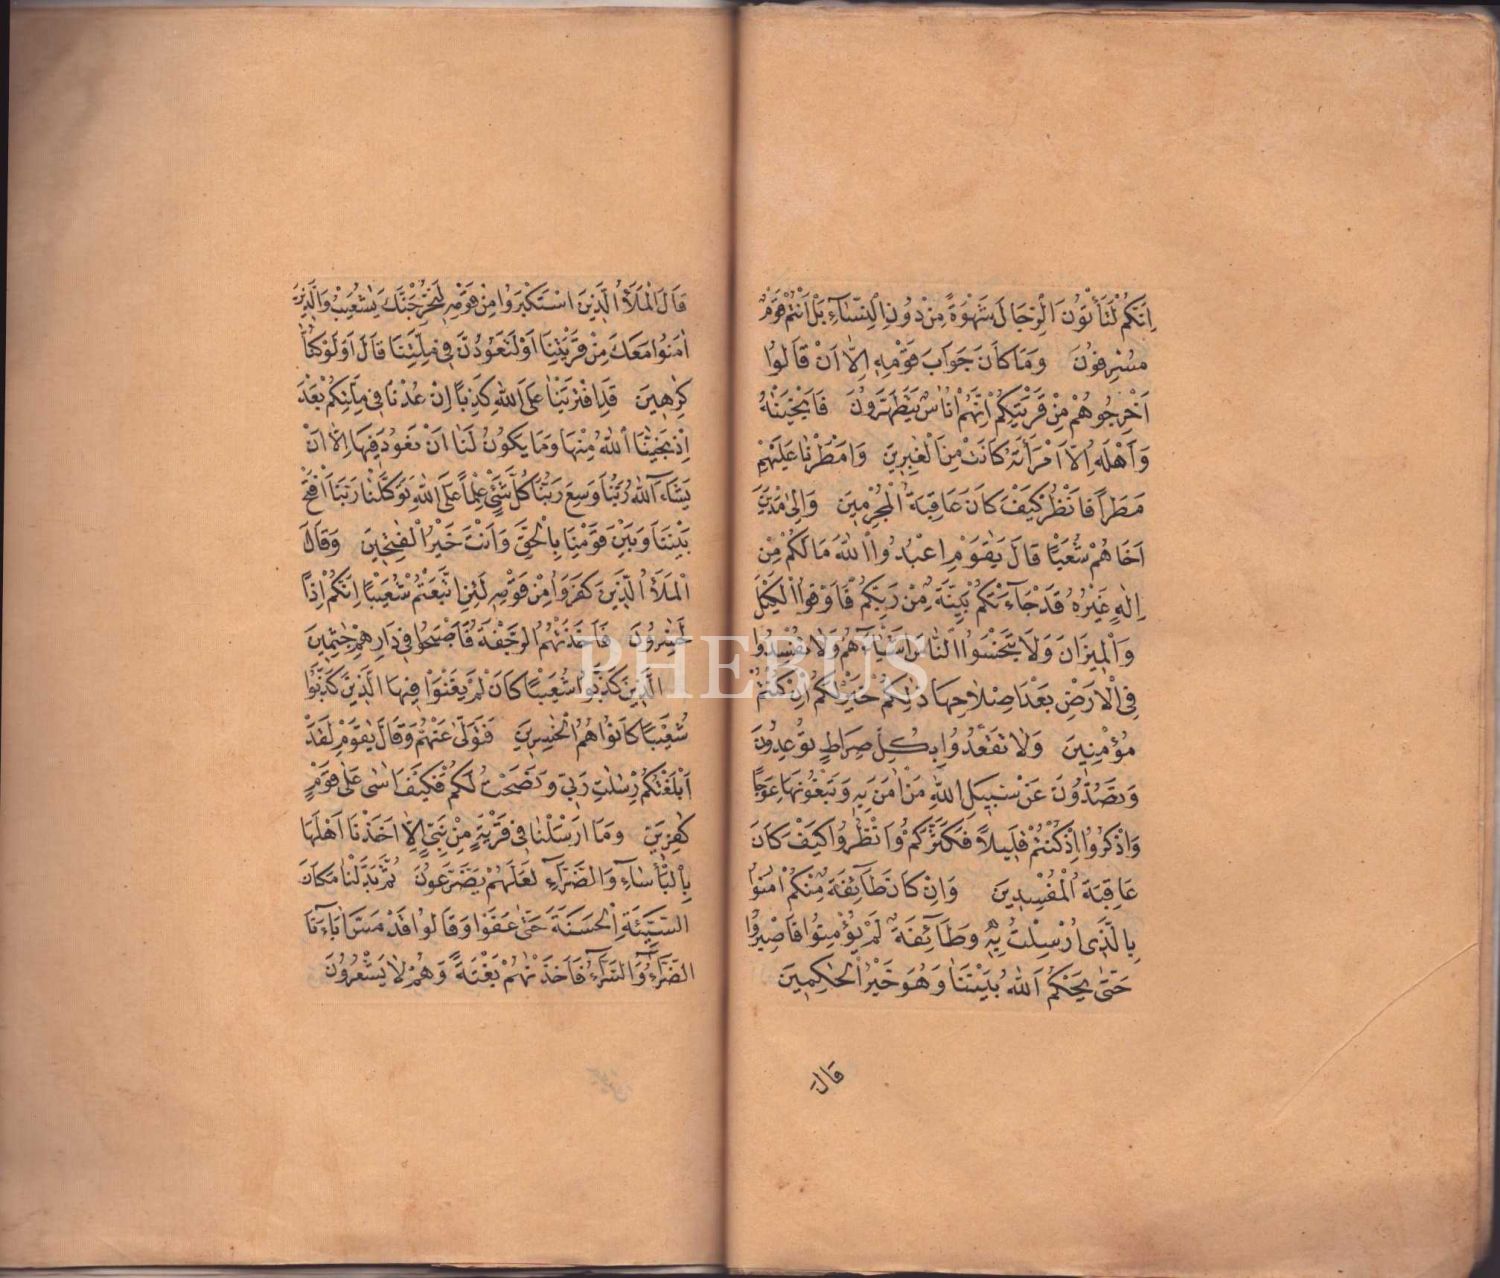 اِنَّكُمْ لَتَأْتُونَ الرِّجَالَ شَهْوَةً مِنْ دُونِ النِّسَاءِ بَلْ اَنْتُمْ قَوْمٌ
مُسْرِفُونَ وَمَا كَانَ جَوَابَ قَوْمِهِ اِلَّا اَنْ قَالُوا
اَخْرِجُوهُمْ مِنْ قَرْيَتِكُمْ اِنَّهُمْ اُنَاسٌ يَتَطَهَّرُونَ فَاَنْجَيْنَاهُ
وَاَهْلَهُ اِلَّا امْرَاَتَهُ كَانَتْ مِنَ الْغٰبِرِينَ وَاَمْطَرْنَا عَلَيْهِمْ
مَطَرًا فَانْظُرْ كَيْفَ كَانَ عَاقِبَةُ الْمُجْرِمِينَ وَاِلٰى مَدْيَنَ
اَخَاهُمْ شُعَيْبًا قَالَ يٰقَوْمِ اعْبُدُوا اللّٰهَ مَا لَكُمْ مِنْ
اِلٰهٍ غَيْرُهُ قَدْ جَٓاءَتْكُمْ بَيِّنَةٌ مِنْ رَبِّكُمْ فَاَوْفُوا الْكَيْلَ
وَالْمِيزَانَ وَلَا تَبْخَسُوا النَّاسَ اَشْيَٓاءَهُمْ وَلَا تُفْسِدُوا
فِي الْاَرْضِ بَعْدَ اِصْلَاحِهَا ذٰلِكُمْ خَيْرٌ لَكُمْ اِنْ كُنْتُمْ
مُؤْمِنِينَ وَلَا تَقْعُدُوا بِكُلِّ صِرَاطٍ تُوعِدُونَ
وَتَصُدُّونَ عَنْ سَبِيلِ اللّٰهِ مَنْ اٰمَنَ بِهِ وَتَبْغُونَهَا عِوَجًا
وَاذْكُرُوا اِذْ كُنْتُمْ قَلِيلًا فَكَثَّرَكُمْ وَانْظُرُوا كَيْفَ كَانَ
عَاقِبَةُ الْمُفْسِدِينَ وَاِنْ كَانَ طَٓائِفَةٌ مِنْكُمْ اٰمَنُوا
بِالَّذِي اُرْسِلْتُ بِهِ وَطَٓائِفَةٌ لَمْ يُؤْمِنُوا فَاصْبِرُوا
حَتّٰى يَحْكُمَ اللّٰهُ بَيْنَنَا وَهُوَ خَيْرُ الْحَاكِمِينَ
قَالَ
قَالَ الْمَلَأُ الَّذِينَ اسْتَكْبَرُوا مِنْ قَوْمِهِ لَنُخْرِجَنَّكَ يٰشُعَيْبُ وَالَّذِينَ
اٰمَنُوا مَعَكَ مِنْ قَرْيَتِنَا اَوْ لَتَعُودُنَّ فِي مِلَّتِنَا قَالَ اَوَلَوْ كُنَّا
كٰرِهِينَ قَدِ افْتَرَيْنَا عَلَى اللّٰهِ كَذِبًا اِنْ عُدْنَا فِي مِلَّتِكُمْ بَعْدَ
اِذْ نَجّٰينَا اللّٰهُ مِنْهَا وَمَا يَكُونُ لَنَا اَنْ نَعُودَ فِيهَا اِلَّا اَنْ
يَشَٓاءَ اللّٰهُ رَبُّنَا وَسِعَ رَبُّنَا كُلَّ شَيْءٍ عِلْمًا عَلَى اللّٰهِ تَوَكَّلْنَا رَبَّنَا افْتَحْ
بَيْنَنَا وَبَيْنَ قَوْمِنَا بِالْحَقِّ وَاَنْتَ خَيْرُ الْفٰتِحِينَ وَقَالَ
الْمَلَأُ الَّذِينَ كَفَرُوا مِنْ قَوْمِهِ لَئِنِ اتَّبَعْتُمْ شُعَيْبًا اِنَّكُمْ اِذًا
لَخٰسِرُونَ فَاَخَذَتْهُمُ الرَّجْفَةُ فَاَصْبَحُوا فِي دَارِهِمْ جٰثِمِينَ
الَّذِينَ كَذَّبُوا شُعَيْبًا كَاَنْ لَمْ يَغْنَوْا فِيهَا الَّذِينَ كَذَّبُوا
شُعَيْبًا كَانُوا هُمُ الْخٰسِرِينَ فَتَوَلّٰى عَنْهُمْ وَقَالَ يٰقَوْمِ لَقَدْ
اَبْلَغْتُكُمْ رِسٰلٰتِ رَبِّي وَنَصَحْتُ لَكُمْ فَكَيْفَ اٰسٰى عَلٰى قَوْمٍ
كٰفِرِينَ وَمَا اَرْسَلْنَا فِي قَرْيَةٍ مِنْ نَبِيٍّ اِلَّا اَخَذْنَا اَهْلَهَا
بِالْبَأْسَٓاءِ وَالضَّرَّٓاءِ لَعَلَّهُمْ يَضَّرَّعُونَ ثُمَّ بَدَّلْنَا مَكَانَ
السَّيِّئَةِ الْحَسَنَةَ حَتّٰى عَفَوْا وَقَالُوا قَدْ مَسَّ اٰبَٓاءَنَا
الضَّرَّٓاءُ وَالسَّرَّٓاءُ فَاَخَذْنٰهُمْ بَغْتَةً وَهُمْ لَا يَشْعُرُونَ
PHEBUS